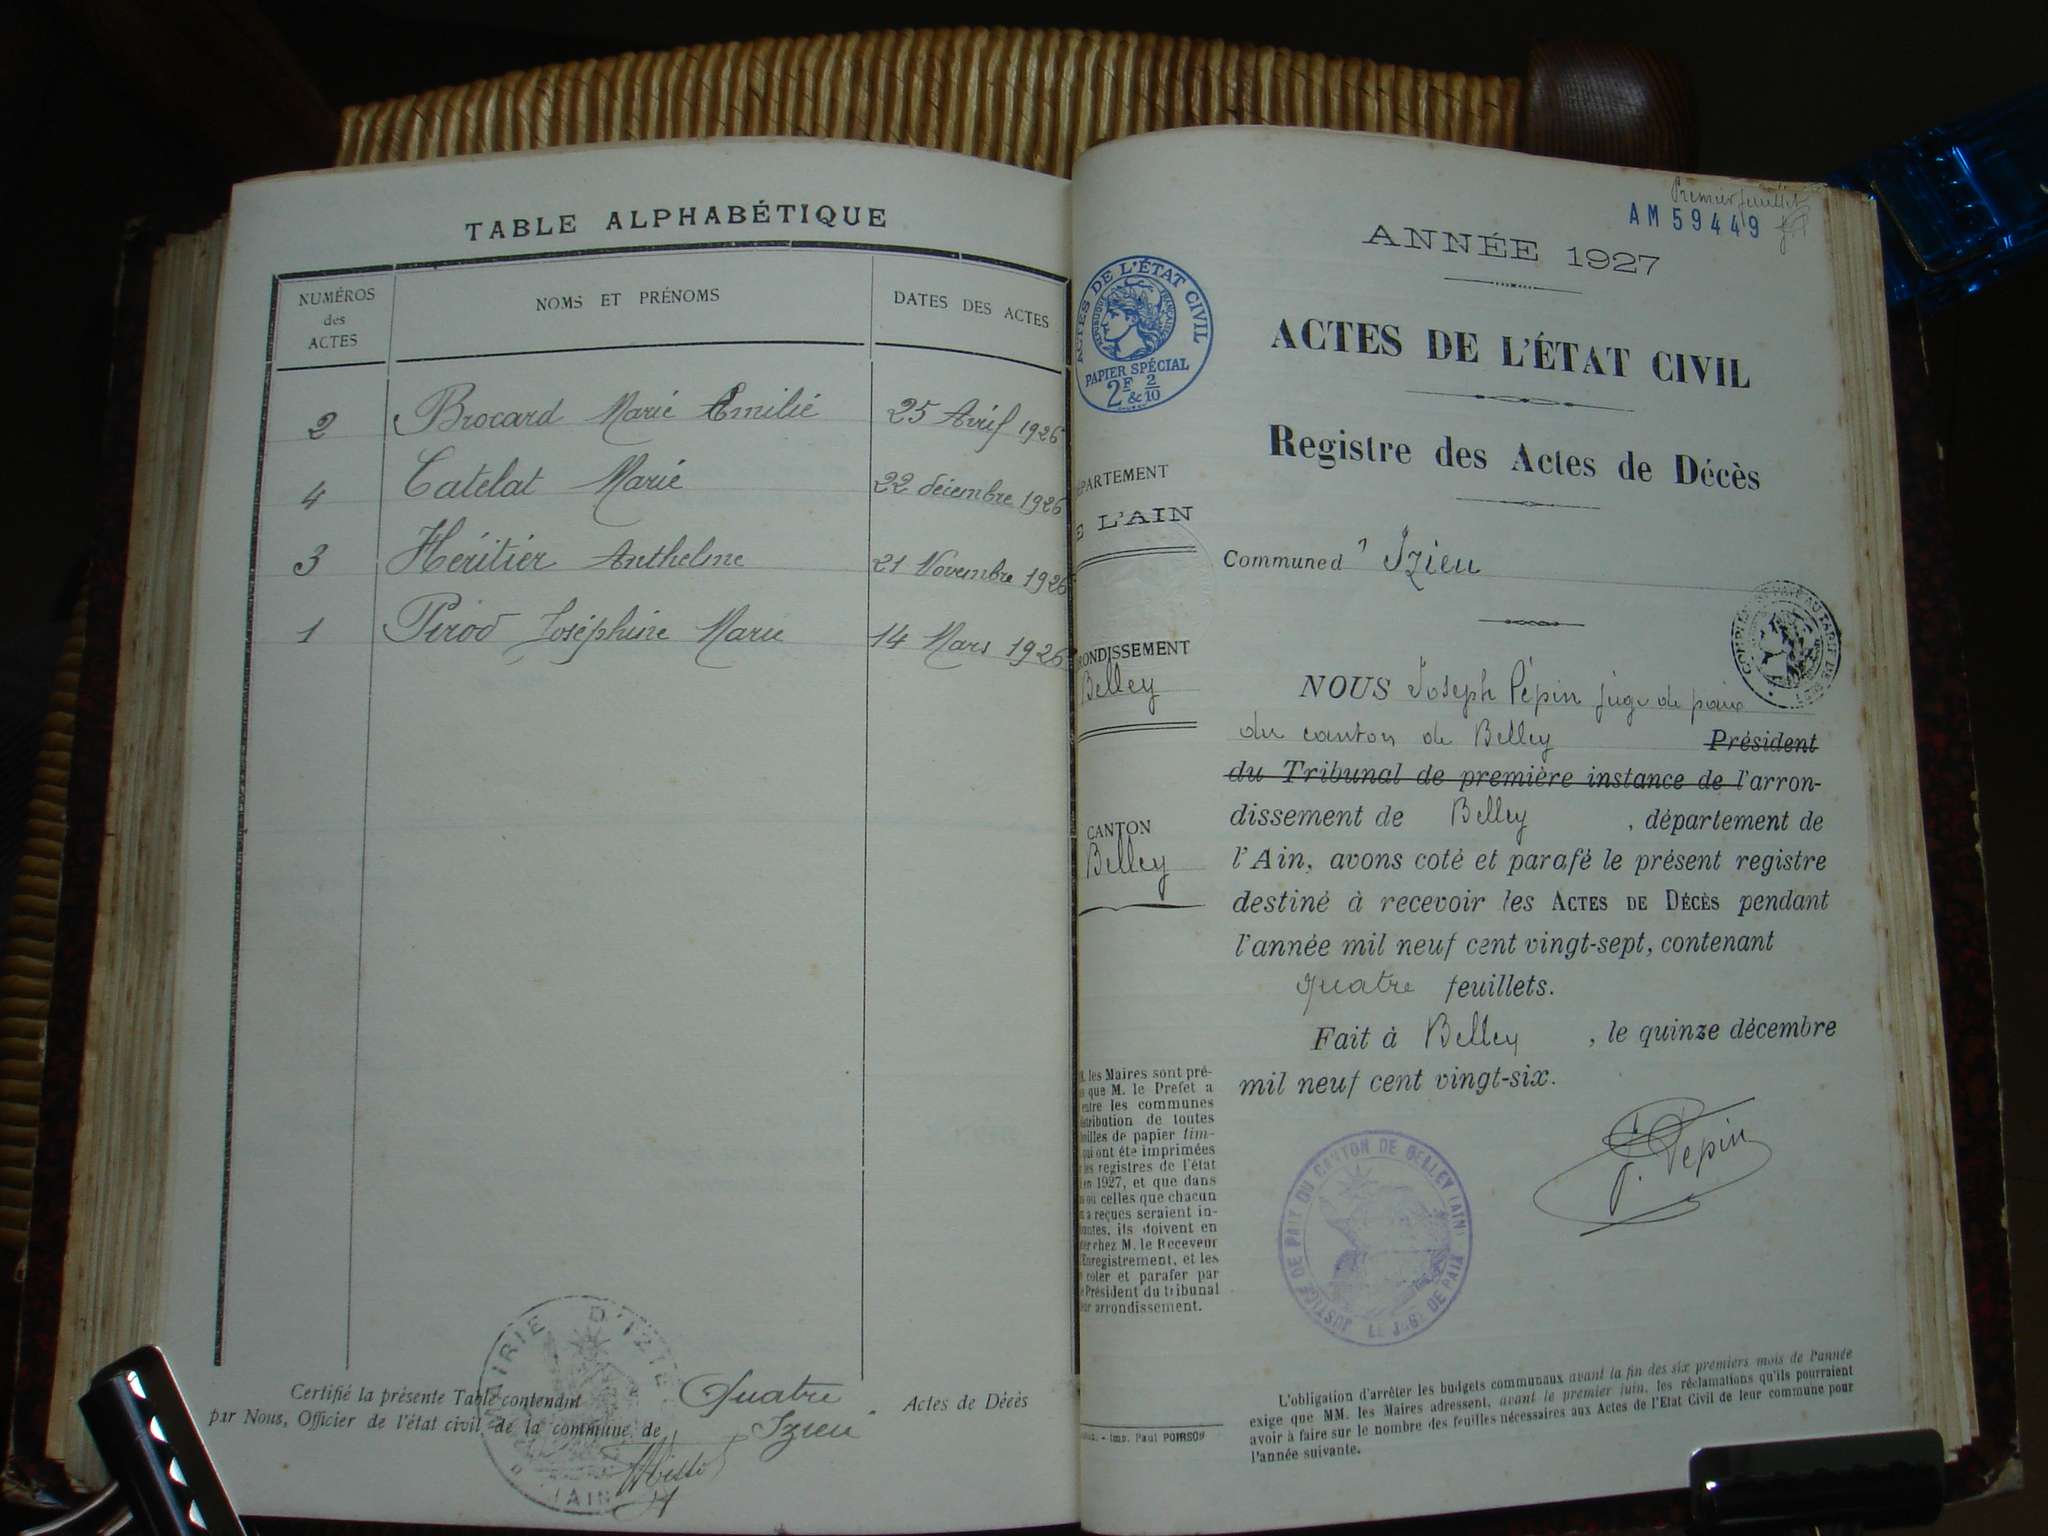 TABLE ALPHABÉTIQUE
NUMÉROS des ACTES
NOMS ET PRÉNOMS
DATES DES ACTES
2 Brocard Marie Emilie 25 Avril 1926
4 Catelat Marie 22 décembre 1926
3 Héritier Anthelme 21 Novembre 1926
1 Pirod Joséphine Marie 14 Mars 1926
Certifié la présente Table contenant Quatre Actes de Décès
par Nous, Officier de l'état civil de la commune de Izieu
MAIRIE D'IZIEU
(AIN)
Premier feuillet
AM 59449
ANNÉE 1927
ACTES DE L'ÉTAT CIVIL
PAPIER SPÉCIAL
2F & 2/10
ACTES DE L'ÉTAT CIVIL
Registre des Actes de Décès
PARTEMENT
L'AIN
Commune d' Izieu
RONDISSEMENT
Belley
CANTON
Belley
NOUS Joseph Pépin juge de paix
du canton de Belley Président
du Tribunal de première instance de l'arron-
dissement de Belley, département de
l'Ain, avons coté et parafé le présent registre
destiné à recevoir les ACTES DE DÉCÈS pendant
l'année mil neuf cent vingt-sept, contenant
quatre feuillets.
Fait à Belley, le quinze décembre
mil neuf cent vingt-six.
les Maires sont pré-
que M. le Prefet a
entre les communes
tribution de toutes
uilles de papier tim-
qui ont été imprimées
les registres de l'état
en 1927, et que dans
ou celles que chacun
a reçues seraient in-
antes, ils doivent en
er chez M. le Receveur
Enregistrement, et les
coter et parafer par
Président du tribunal
arrondissement.
JUSTICE DE PAIX DU CANTON DE BELLEY (AIN)
LE JUGE DE PAIX
J. Pepin
- Imp. Paul POIRSON
L'obligation d'arrêter les budgets communaux avant la fin des six premiers mois de l'année
exige que MM. les Maires adressent, avant le premier juin, les réclamations qu'ils pourraient
avoir à faire sur le nombre des feuilles nécessaires aux Actes de l'Etat Civil de leur commune pour
l'année suivante.